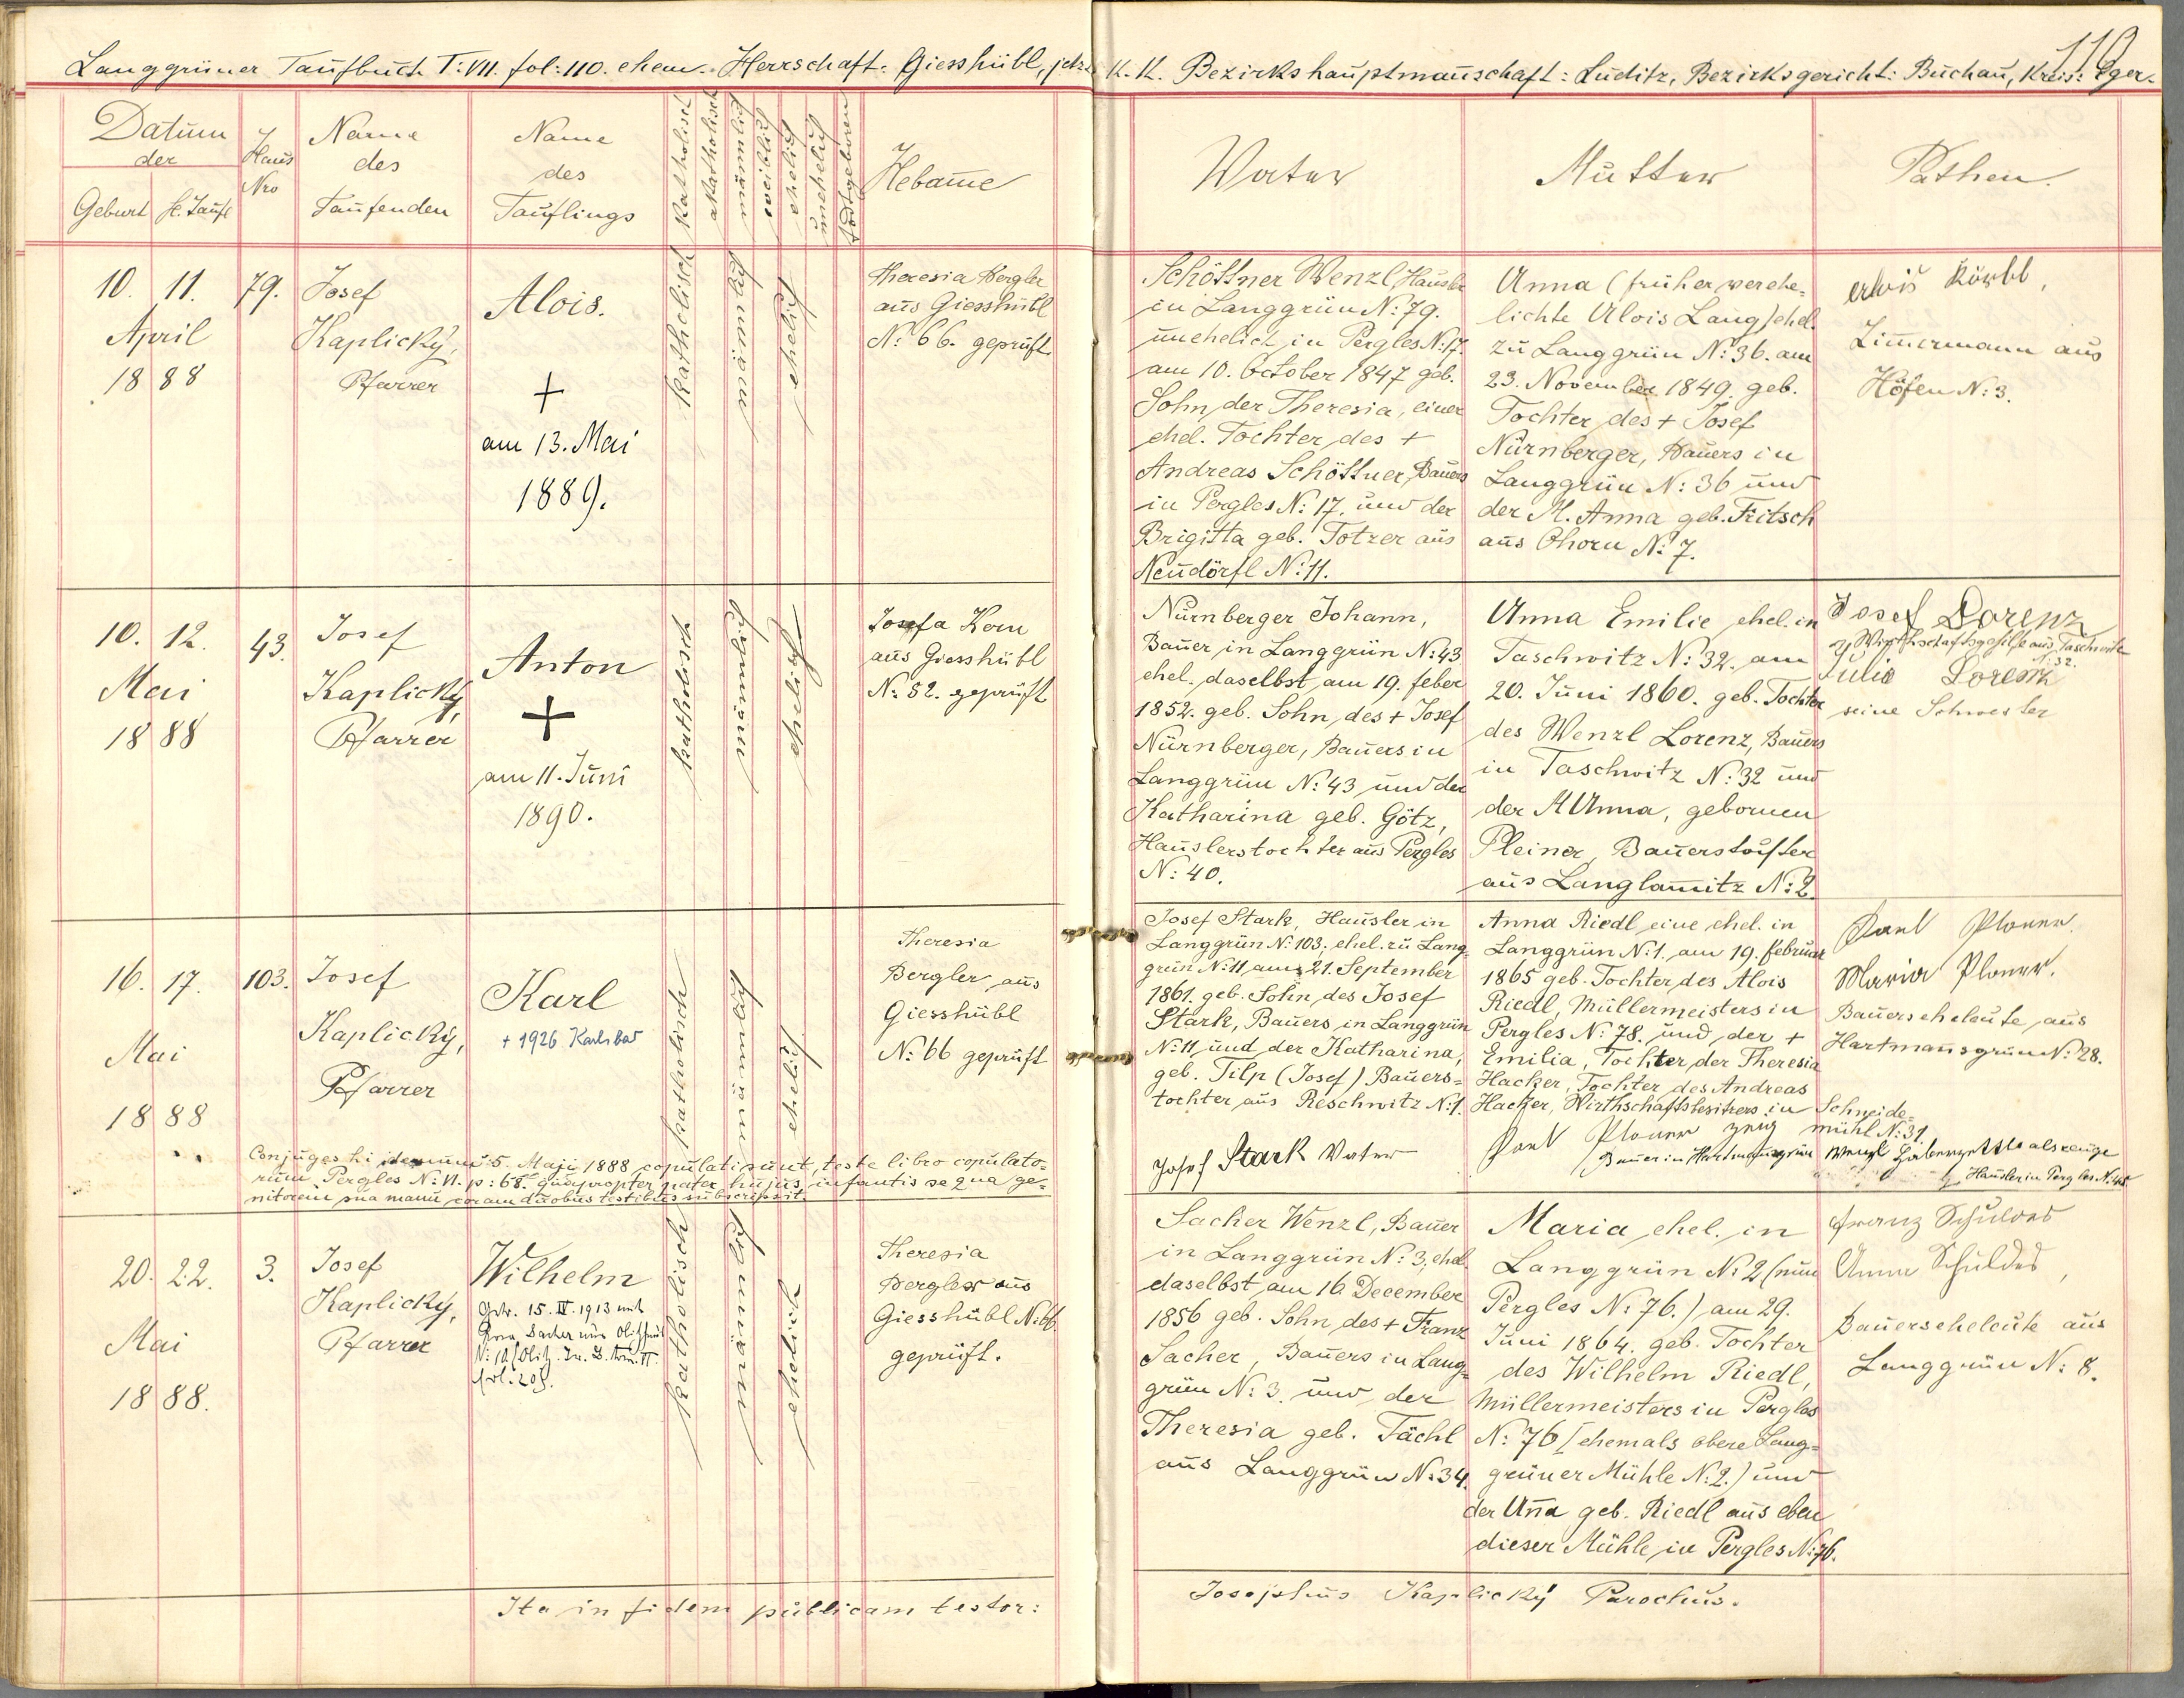 Langgrüner Taufbuch T: VII. fol: 110. ehem. Herrschaft: Giesshübl, jetzt K. K. Bezirkshauptmannschaft: Luditz, Bezirksgericht: Buchau, Kreis: Eger.
110
Datum
der
Geburt hl. Taufe
Haus
Nro
Name
des
Taufenden
Name
des
Täuflings
katholisch
akatholisch
männlich
weiblich
ehelich
unehelich
todtgeboren
Hebam̅e
Vater
Mutter
Pathen.
10. 11.
April
18 88
79.
Josef
Kaplický,
Pfarrer
Alois.
+
am 13. Mai
1889.
katholisch
männlich
ehelich
Theresia Bergler
aus Giesshübl
N: 66. geprüft
Schöttner Wenzl, Häusler
in Langgrün N: 79.
unehelich in Pergles N: 17.
am 10. October 1847 geb.
Sohn der Theresia, einer
ehel. Tochter des +
Andreas Schöttner, Bauers
in Pergles N: 17. und der
Brigitta geb. Totzer aus
Neudörfl N: 11.
Anna (früher verehe=
lichte Alois Lang) ehel.
zu Langgrün N: 36. am
23. November 1849. geb.
Tochter des + Josef
Nürnberger, Bauers in
Langgrün N: 36 und
der M. Anna geb. Fritsch
aus Ohorn N: 7.
Zimmermann aus
Höfen N: 3.
10. 12.
Mai
18 88
43.
Josef
Kaplický,
Pfarrer
Anton
+
am 11. Juni
1890.
katholisch
männlich
ehelich
Josefa Korn
aus Giesshübl
N: 52. geprüft
Nürnberger Johann,
Bauer in Langgrün N: 43
ehel. daselbst am 19. feber
1852. geb. Sohn des + Josef
Nürnberger, Bauers in
Langgrün N: 43 und der
Katharina geb. Götz,
Häuslerstochter aus Pergles
N: 40.
Anna Emilie ehel. in
Taschwitz N: 32. am
20. Juni 1860. geb. Tochter
des Wenzl Lorenz, Bauers
in Taschwitz N: 32 und
der M Anna, gebornen
Pleiner, Bauerstochter
aus Langlam̅itz N: 2.
Josef Lorenz
Wirthschaftsgehilfe aus Taschwitz
N: 32.
Julia Lorenz
seine Schwester
16. 17.
Mai
18 88
103.
Josef
Kaplický,
Pfarrer
Karl
+ 1926 Karlsbad
katholisch
männlich
ehelich
Theresia
Bergler aus
Giesshübl
N: 66 geprüft
Josef Stark, Häusler in
Langgrün N: 103; ehel. zu Lang=
grün N: 11 am 21. September
1861. geb. Sohn des Josef
Stark, Bauers in Langgrün
N: 11 und der Katharina,
geb. Tilp (Josef) Bauers=
tochter aus Reschwitz N: 1.
Anna Riedl eine ehel. in
Langgrün N: 1. am 19. februar
1865 geb. Tochter des Alois
Riedl, Müllermeisters in
Pergles N: 78. und der +
Emilia, Tochter der Theresia
Hacker, Tochter des Andreas
Hacker, Wirthschaftsbesitzers in Schneide=
mühl N: 31.
Karl Ploner.
Maria Ploner.
Bauerseheleute aus
Hartmansgrün N: 28.
Conjuges hi 5. Maji 1888 copulati sunt, teste libro copulato=
rum Pergles N: II. p: 68. quapropter pater hujus infantis se qua ge=
nitorem sua manu coram duobus testibus subscripsit.
Josef Stark Vater
Karl Ploner Zeug
Bauer in Hartmansgrün
Wenzl als Zeuge
Häusler in Pergles N: 45
20. 22.
Mai
18 88.
3.
Josef
Kaplický,
Pfarrer
Wilhelm
Getr. 15. IV. 1913 mit
Rosa Sacher aus
N: 10
fol: 205.
katholisch
männlich
ehelich
Theresia
Bergler aus
Giesshübl N: 66.
geprüft.
Sacher Wenzl, Bauer
in Langgrün N: 3; ehel.
daselbst am 16 December
1856 geb. Sohn des + Franz
Sacher, Bauers in Lang=
grün N: 3. und der
Theresia geb. Tächl
aus Langgrün N: 34.
Maria ehel. in
Langgrün N: 2 (nun
Pergles N: 76.) am 29.
Juni 1864. geb. Tochter
des Wilhelm Riedl,
Müllermeisters in Pergles
N: 76 (ehemals obere Lang=
grüner Mühle N: 2.) und
der An̅a geb. Riedl aus eben
dieser Mühle in Pergles N: 76.
Franz Schuldes
Anna Schuldes,
Bauerseheleute aus
Langgrün N: 8.
Ita in fidem publicam testor:
Josephus Kaplický Parochus.